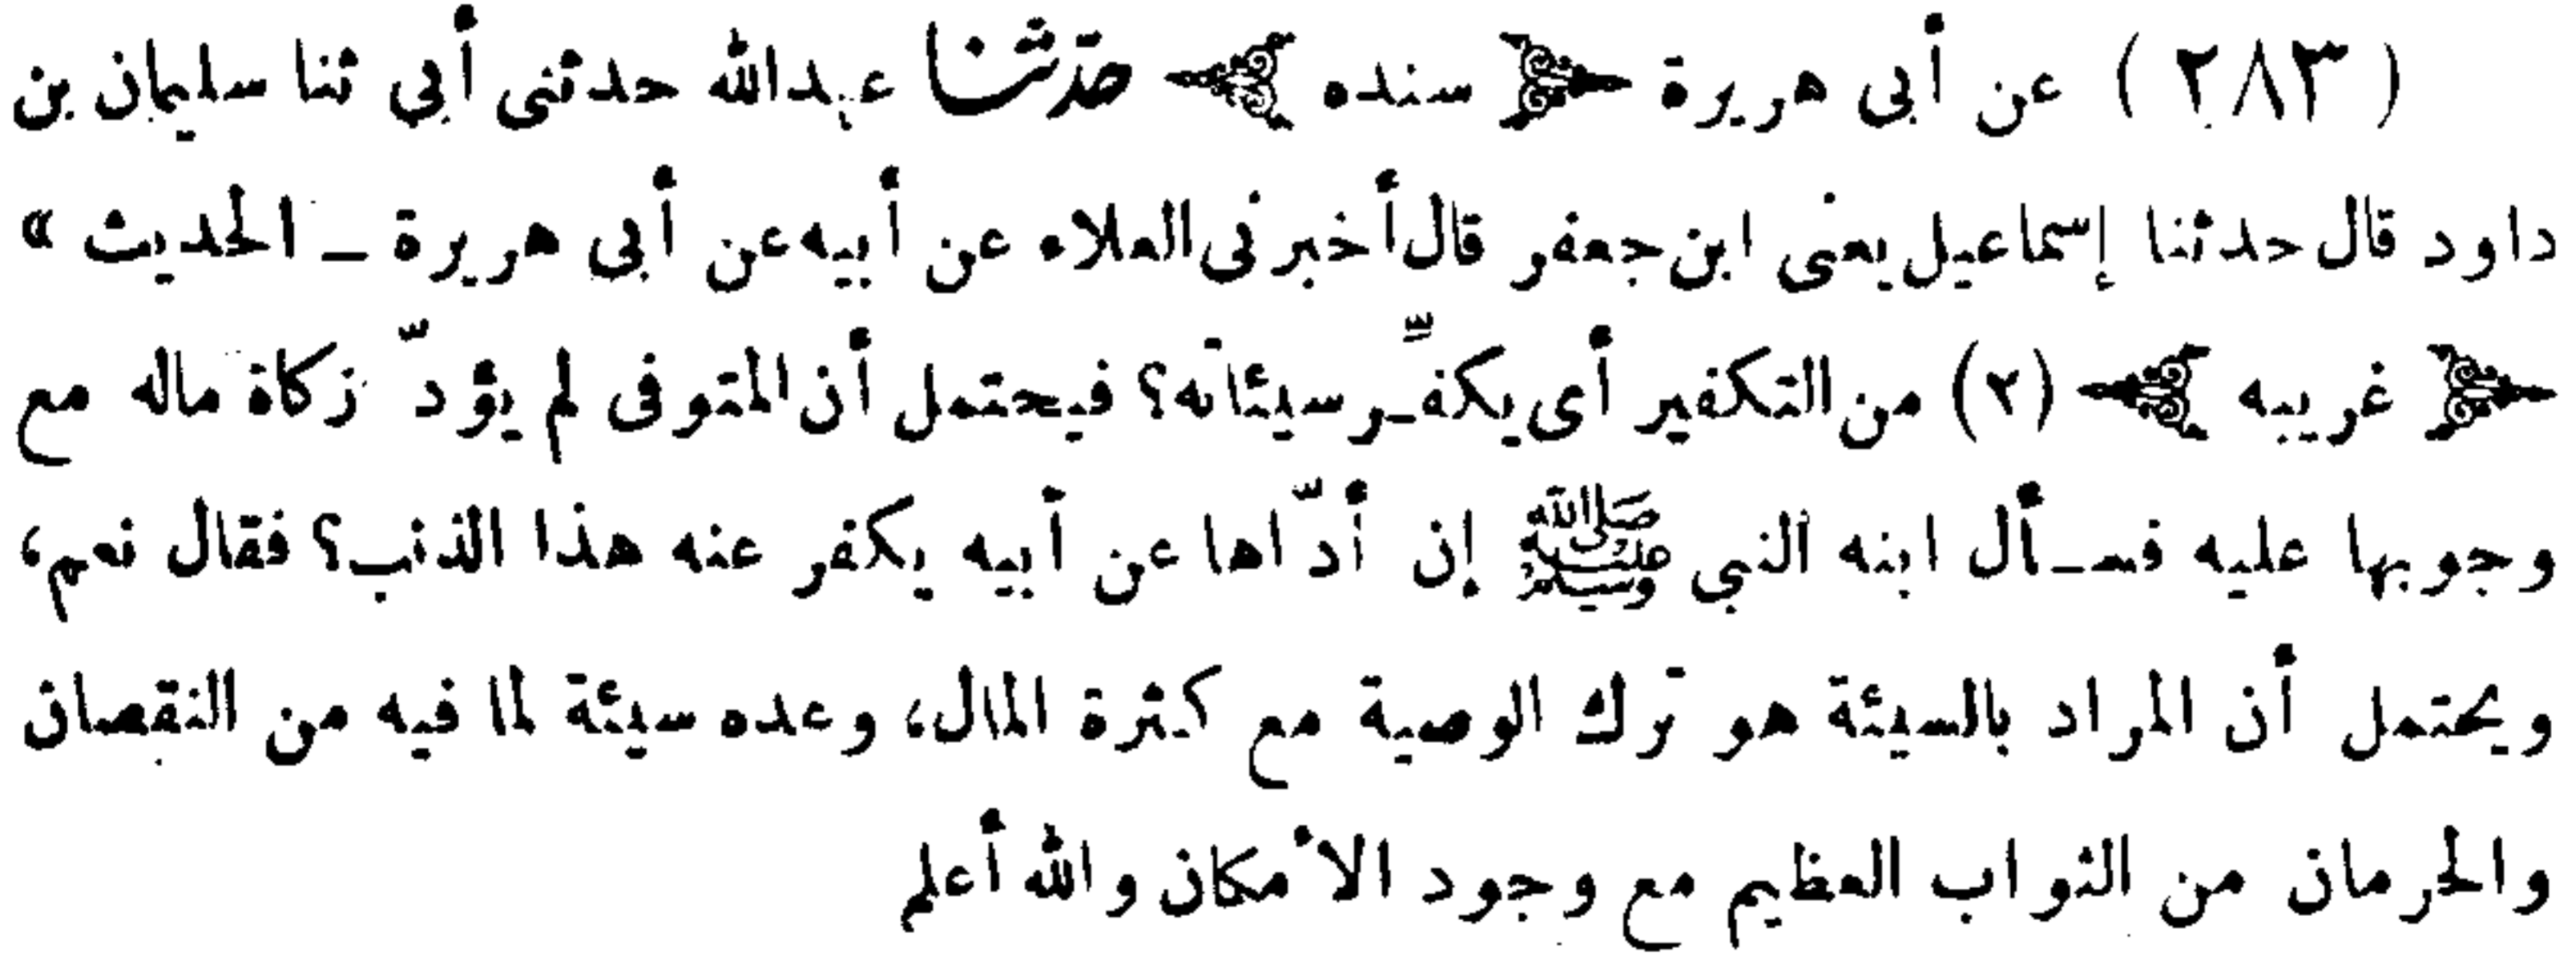 ( ٢٨٣ ) عن أبى هريرة ﴿ سنده ﴾ حدّثنا عبدالله حدثنى أبي ثنا سليمان بن
داود قال حدثنا إسماعيل يعنى ابن جعفر قال أخبرنى العلاء عن أبيه عن أبى هريرة ــ الحديث »
﴿ غريبه ﴾ (٢) من التكفير أى يكفِّر سيئاته؟ فيحتمل أن المتوفى لم يؤدّ زكاة ماله مع
وجوبها عليه فسأل ابنه النبي ﷺ إن أدّاها عن أبيه يكفر عنه هذا الذنب؟ فقال نعم،
ويحتمل أن المراد بالسيئة هو ترك الوصية مع كثرة المال، وعده سيئة لما فيه من النقصان
والحرمان من الثواب العظيم مع وجود الأمكان والله أعلم